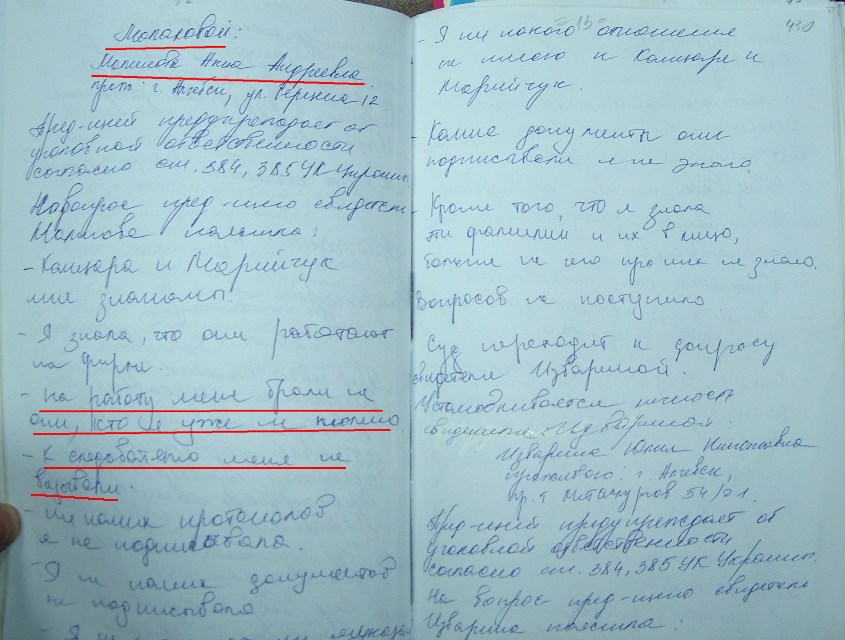 Малаховой:
Малахова Анна Андреевна
прож: г. Алчевск, ул. Герцена 12
Пред-щей предупреждает от
уголовной ответственности
согласно ст. 384, 385 УК Украины.
На вопрос пред-щего свидетель
пояснила:
- Канцара и Марийчук
мне знакомы.
- Я знала, что они работают
на фирме.
- На работу меня брали не
они, кто я уже не помню.
- К следователю меня не
вызывали.
- ни каких протоколов
я не подписывала.
- Я ни каких документов
не подписывала
=15=
430
- Я ни какого отношения
не имею к Канцаре и
Марийчук.
- Какие документы они
подписывали я не знаю.
- Кроме того, что я знала
фамилии и их в лицо,
больше не чего про них не знаю.
Вопросов не поступило
Суд переходит к допросу
свидетеля Извариной.
Устанавливается личность
свидетеля Извариной:
Изварина Юлия
г. Алчевск,
пр. т Металлургов 54/21.
Пред-щей предупреждает от
уголовной ответственности
согласно ст. 384, 385 УК Украины.
На вопрос пред-щего свидетель
Изварина пояснила: